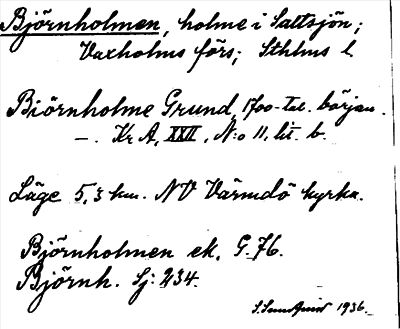 Björnholmen, holme i Saltsjön;
Vaxholms förs; Sthlms l.
Biörnholme Grund, 1700-tal. början.
—. Kr A, XXII, N:o 11, lit. b.
Läge 5,3 km. NV Värmdö kyrka.
Björnholmen ek. G. 76.
Björnh. Sj: 234.
1936.